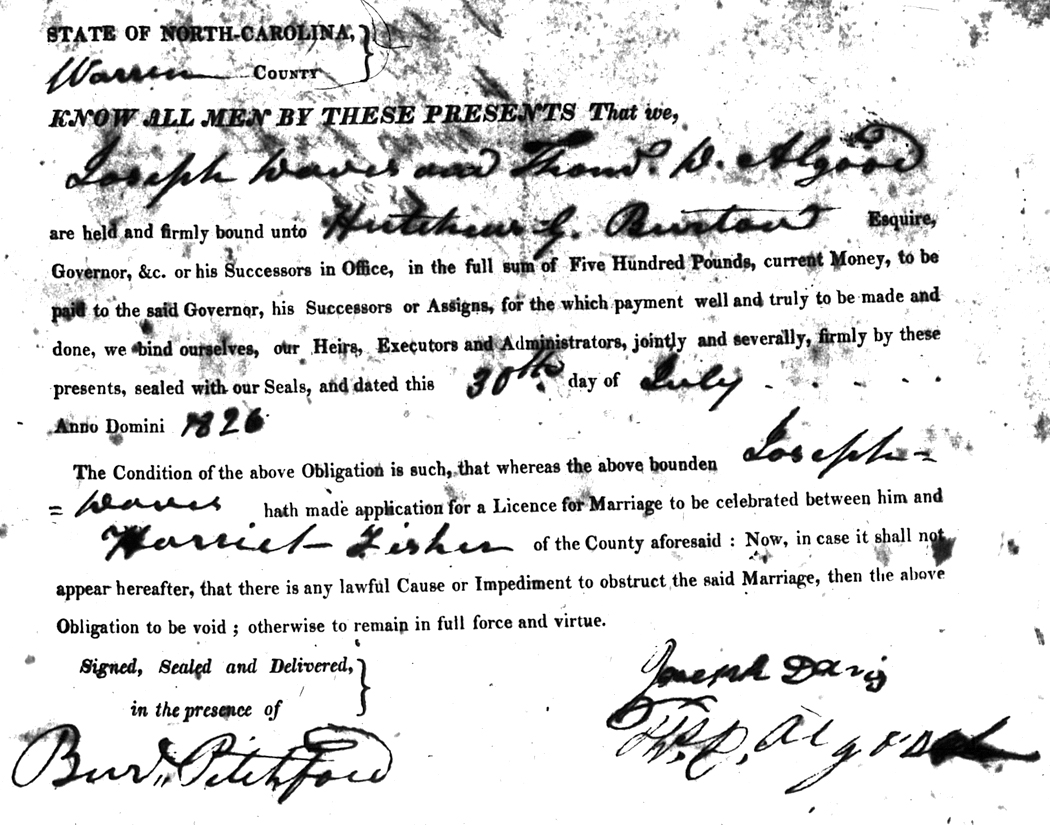 STATE OF NORTH-CAROLINA,
Warren COUNTY
KNOW ALL MEN BY THESE PRESENTS That we,
Joseph Davis and Thomᵈ. D. Algood
are held and firmly bound unto Hutchens G. Burton Esquire,
Governor, &c. or his Successors in Office, in the full sum of Five Hundred Pounds, current Money, to be
paid to the said Governor, his Successors or Assigns, for the which payment well and truly to be made and
done, we bind ourselves, our Heirs, Executors and Administrators, jointly and severally, firmly by these
presents, sealed with our Seals, and dated this 30th day of July . . . . .
Anno Domini 1826
The Condition of the above Obligation is such, that whereas the above bounden Joseph =
= Davis hath made application for a Licence for Marriage to be celebrated between him and
Harriet Fisher of the County aforesaid : Now, in case it shall not
appear hereafter, that there is any lawful Cause or Impediment to obstruct the said Marriage, then the above
Obligation to be void ; otherwise to remain in full force and virtue.
Signed, Sealed and Delivered,
in the presence of
Burd. Pitchford
Joseph Davis
Th. D. Algood